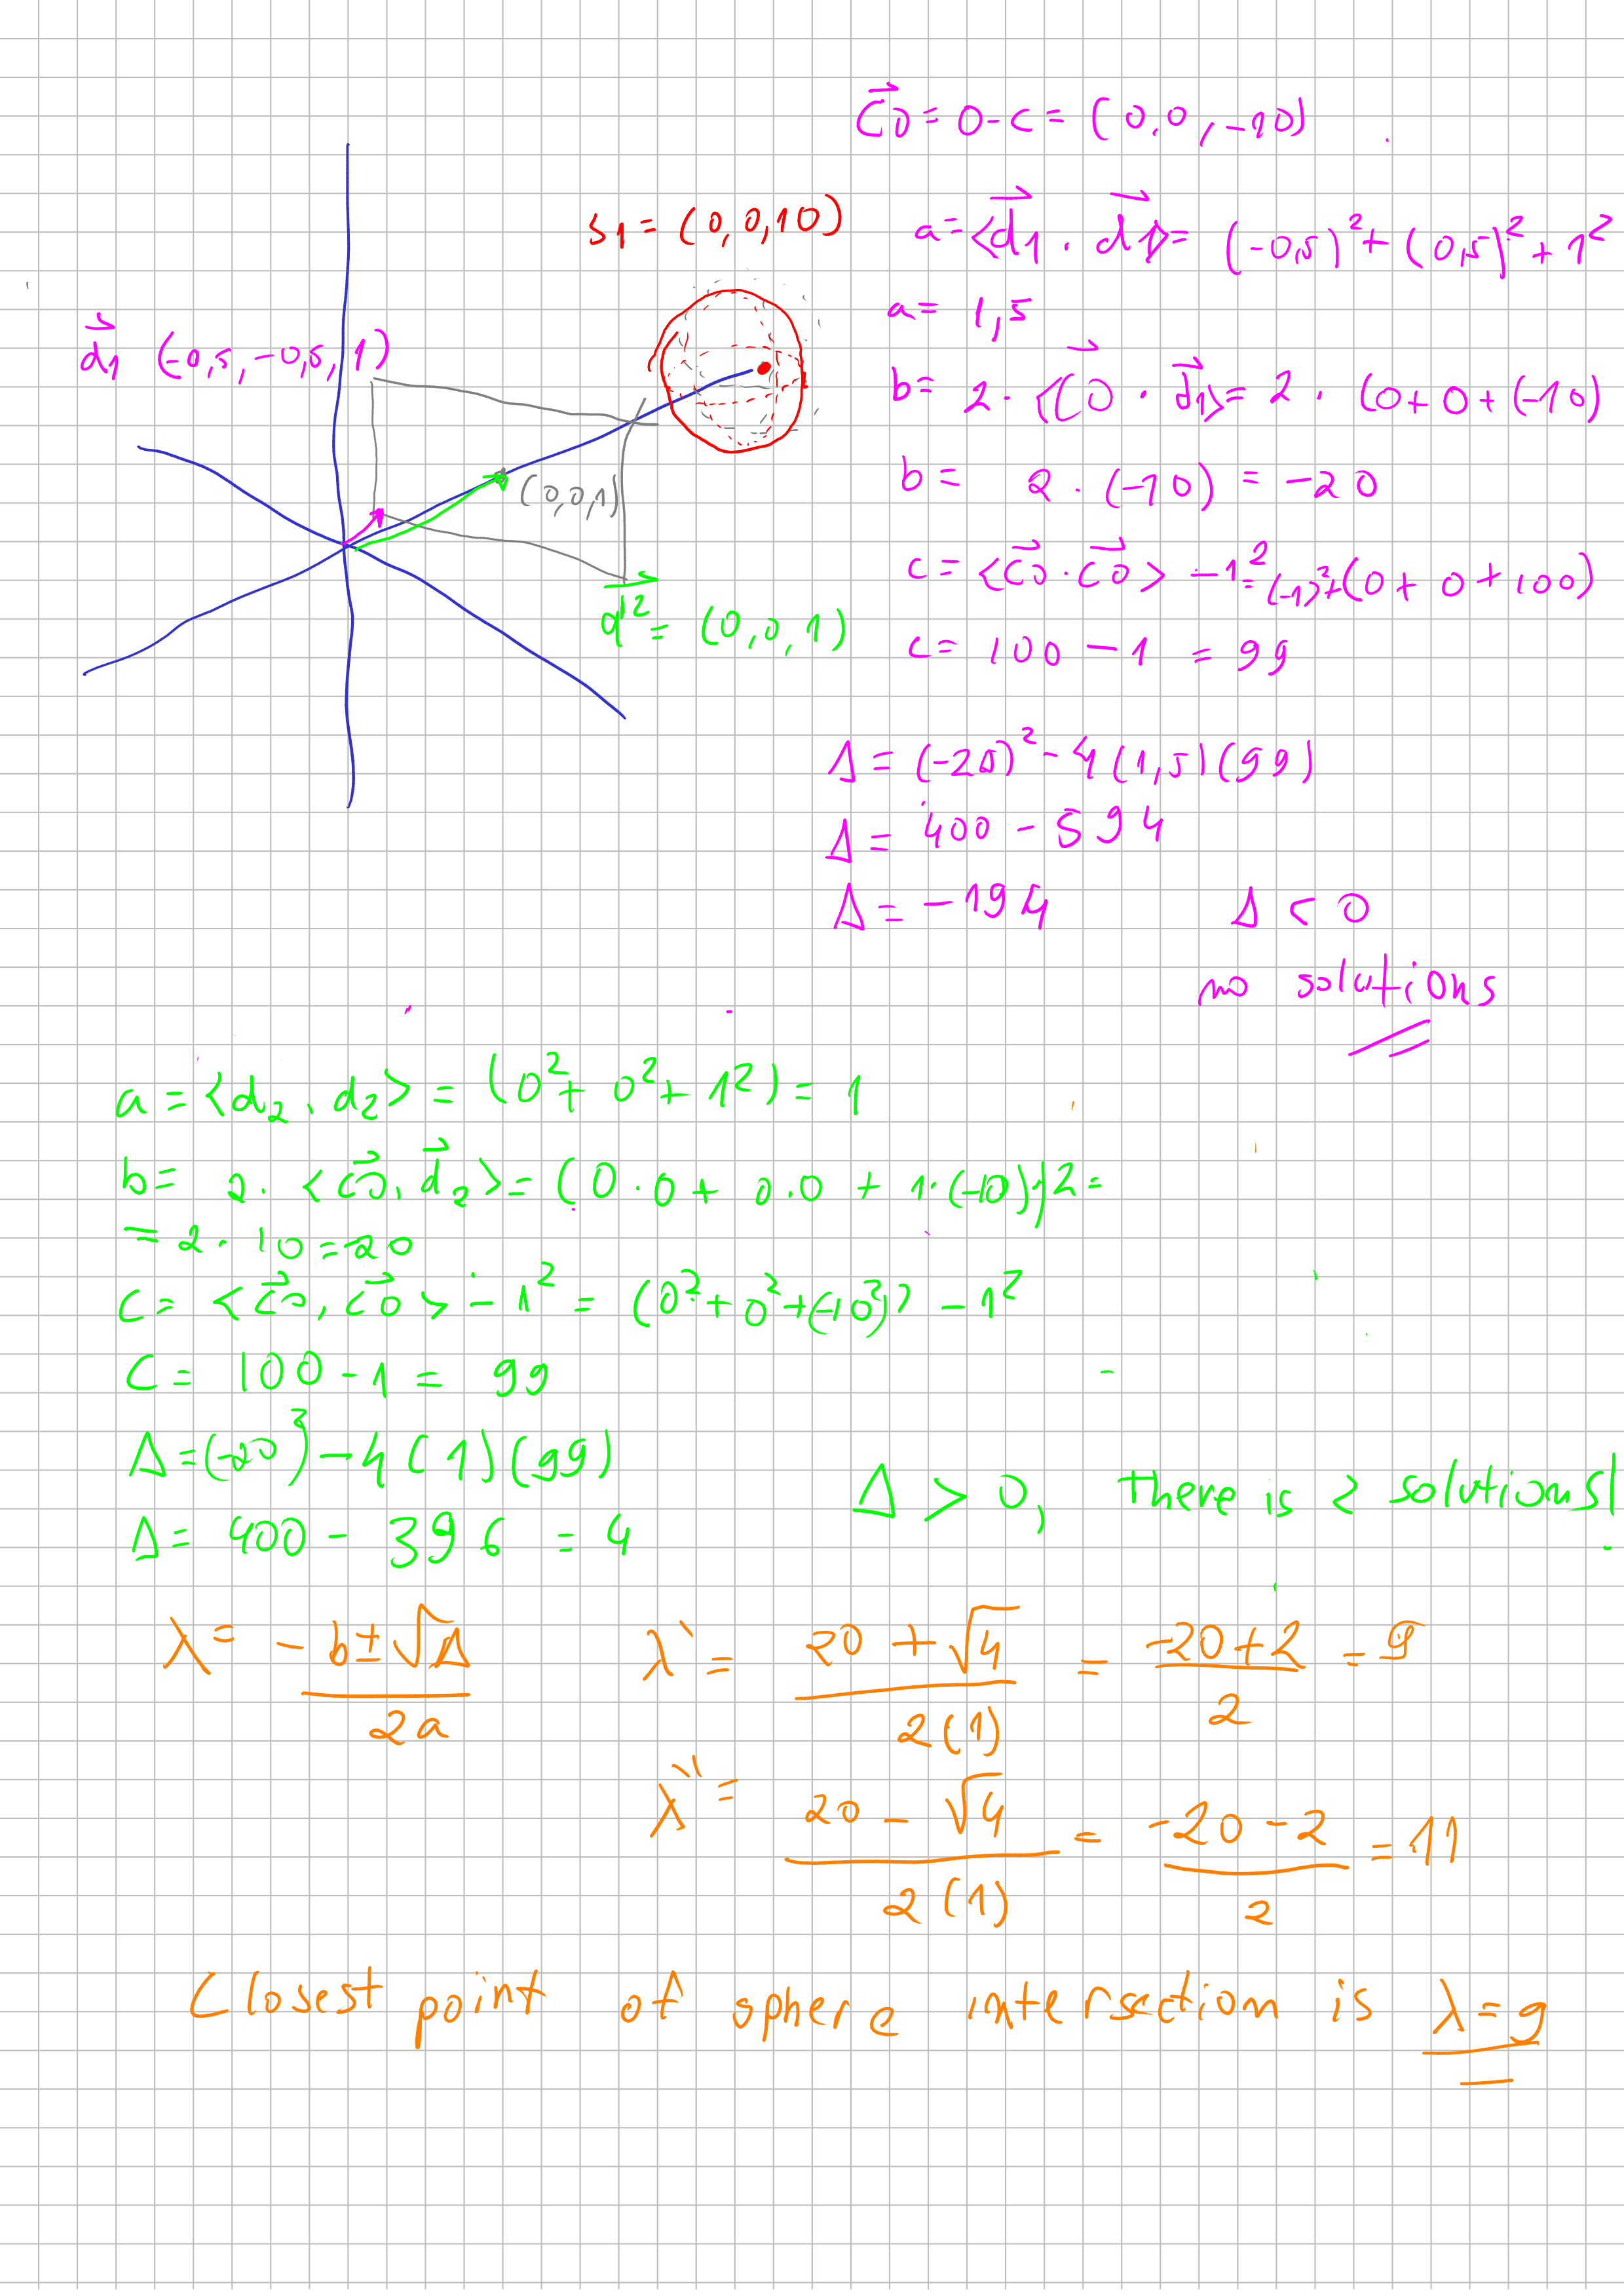 C⃗O = O - C = (0,0,-10)
s1 = (0,0,10)
a = <d⃗1 · d⃗1> = (-0,5)² + (0,5)² + 1²
a = 1,5
d⃗1 (-0,5,-0,5,1)
b = 2 · <C⃗O · d⃗1> = 2 · (0+0+(-10)
b = 2 · (-10) = -20
(0,0,1)
c = <C⃗O · C⃗O> - 1² = (-1)²+(0+0+100)
d⃗2 = (0,0,1)
c = 100 - 1 = 99
Δ = (-20)² - 4(1,5)(99)
Δ = 400 - 594
Δ = -194
Δ < 0
no solutions
a = <d2, d2> = (0²+0²+1²) = 1
b = 2. <C⃗O, d⃗2> = (0.0 + 0.0 + 1.(-10))2 =
= 2 · 10 = -20
C = <C⃗O, C⃗O> - 1² = (0²+0²+(-10²)) - 1²
C = 100 - 1 = 99
Δ = (-20)² - 4(1)(99)
Δ > 0, there is 2 solutions!
Δ = 400 - 396 = 4
λ = -b ± √Δ / 2a
λ' = 20 + √4 / 2(1) = -20+2 / 2 = 9
λ'' = 20 - √4 / 2(1) = -20-2 / 2 = 11
Closest point of sphere intersection is λ = 9